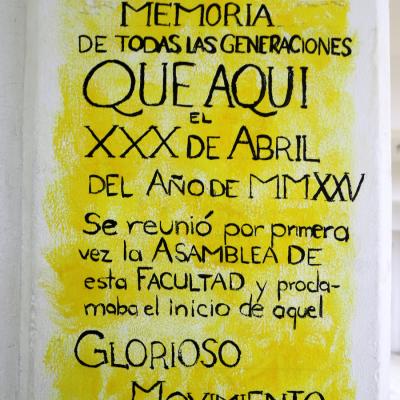 MEMORIA
DE TODAS LAS GENERACIONES
QUE AQUI
EL
XXX DE ABRIL
DEL AÑO DE MMXXV
Se reunió por primera
vez la ASAMBLEA DE
esta FACULTAD y procla-
maba el inicio de aquel
GLORIOSO
MOVIMIENTO